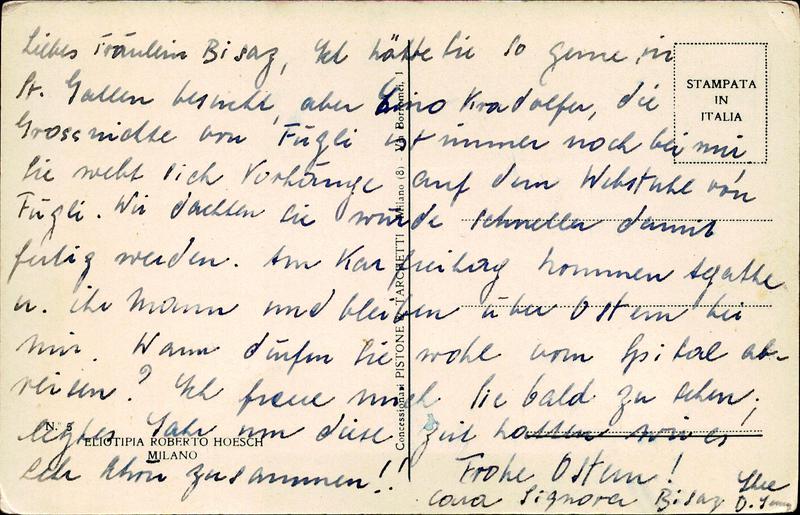 Liebes Fräulein Bisaz, Ich hätte Sie so gerne in
St. Gallen besucht, aber Kradolfer, die
Grossnichte von Fügli ist immer noch bei mir
Sie webt sich Vorhänge auf dem Webstuhl von
Fügli. Wir dachten sie würde schneller damit
fertig werden. Am Karfreitag kommen Agathe
u. ihr Mann und bleiben über Ostern bei
mir. Wann dürfen Sie wohl vom Spital ab-
reisen? Ich freue mich Sie bald zu sehen;
letztes Jahr um diese Zeit hatten wir es
sehr schön zusammen!! Frohe Ostern!
cara Signora Bisaz Ihre
STAMPATA
IN
ITALIA
N. 5
ELIOTIPIA ROBERTO HOESCH
MILANO
Concessionari PISTONE TARCHETTI Milano (8) - Via Borromei, 1